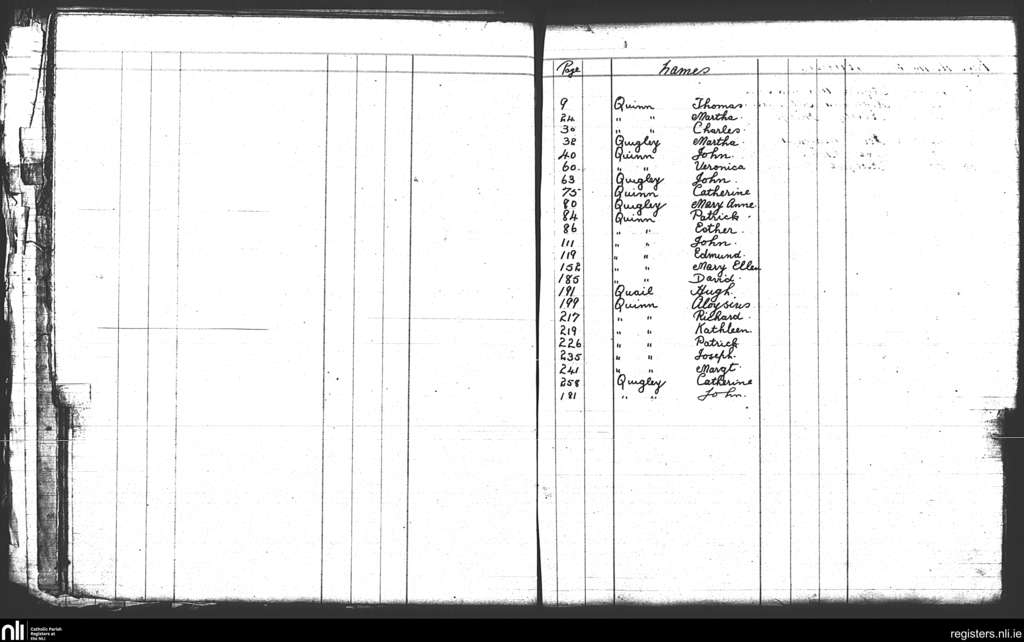 Page Names
9 Quinn Thomas.
24 " " Martha.
30 " " Charles.
32 Quigley Martha.
40 Quinn John.
60 " " Veronica
63 Quigley John.
75 Quinn Catherine
80 Quigley Mary Anne
84 Quinn Patrick.
86 " " Esther.
111 " " John.
119 " " Edmund.
152 " " Mary Ellen
185 " " David.
191 Quail Hugh.
199 Quinn Aloysius
217 " " Richard.
219 " " Kathleen.
226 " " Patrick
235 " " Joseph.
241 " " Margt.
258 Quigley Catherine
181 " " John.
nli Catholic Parish
Registers at
the NLI
registers.nli.ie